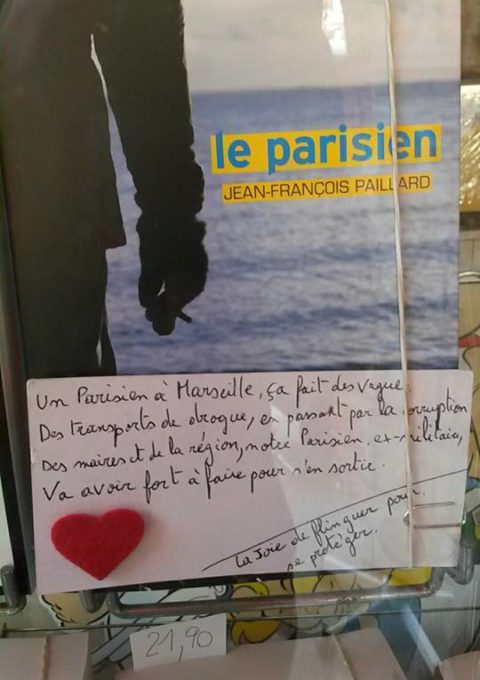 le parisien
JEAN-FRANÇOIS PAILLARD
Un Parisien à Marseille, ça fait des vagues.
Des transports de drogue, en passant par la corruption
Des maires et de la région, notre Parisien, ex-militaire,
Va avoir fort à faire pour s'en sortir.
La Joie de flinguer pour
se protéger.
21,90